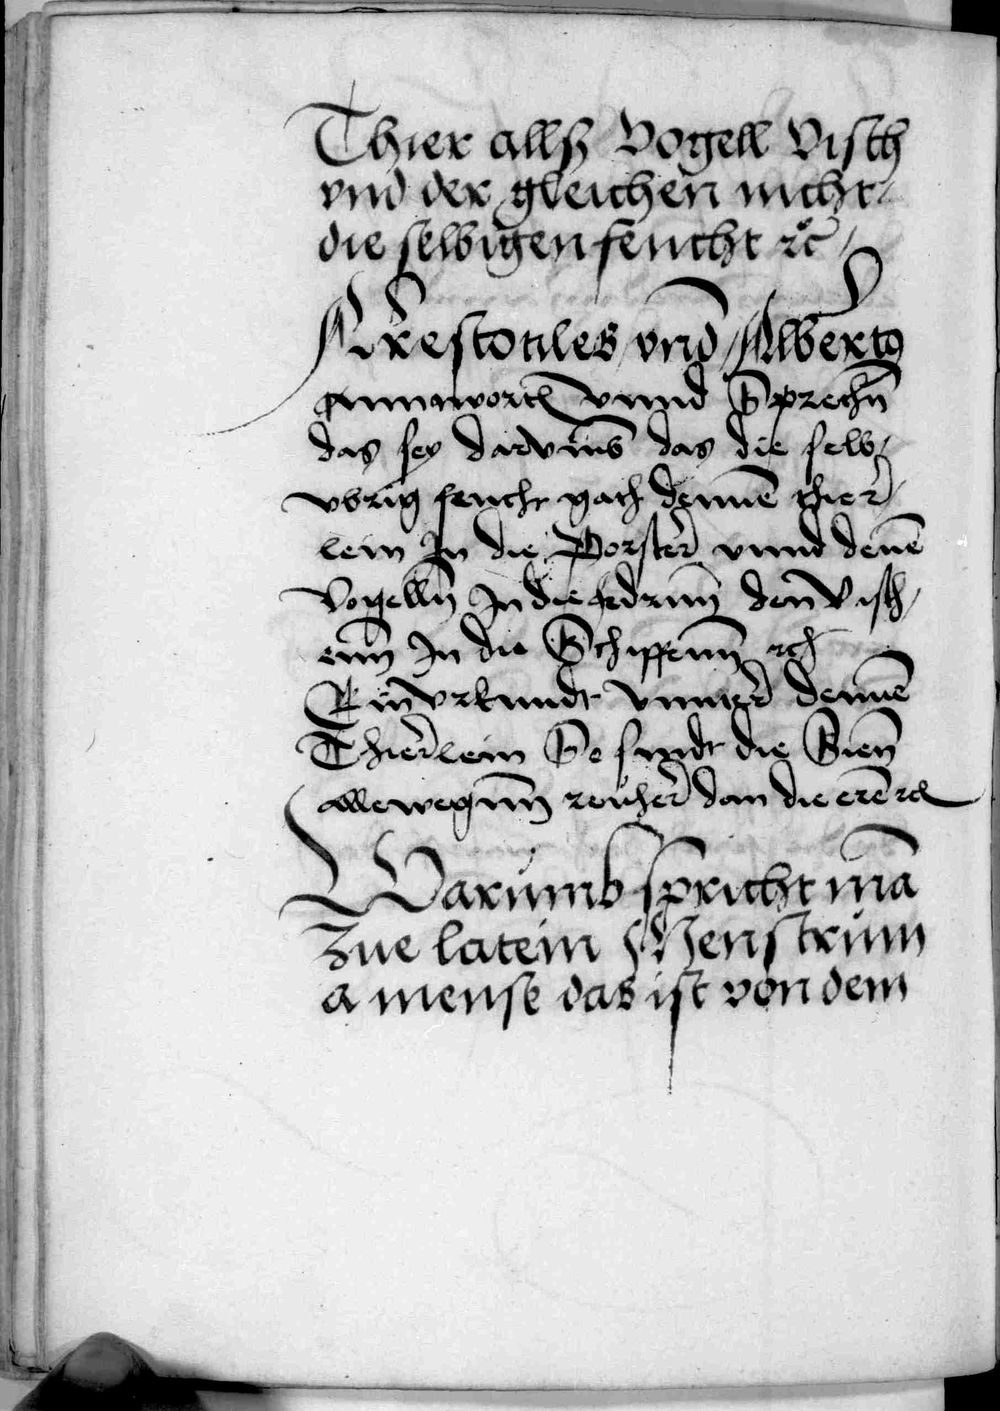 Thier allß Vogell Visch
vnd der gleichen nicht
die selbigen feucht ꝛc̄
Arestotiles vnd Albertꝰ
anntwortt vnnd Sprechn̄
das sey darvmb das die selb
vbrig feucht gath dennē thier
lein In die Porster vnnd denē
Vogelln̄ In die fedrnn̄ den Visch
enn̄ In die Schippenn̄ ꝛc
Ein vrkundt vnnter dennē
Thierlein So sindt die Sien̄
allewegnn̄ reucher dan die erē ꝛc
Warumb spricht mā
Zue latein Menstrum
a mense das ist von dem